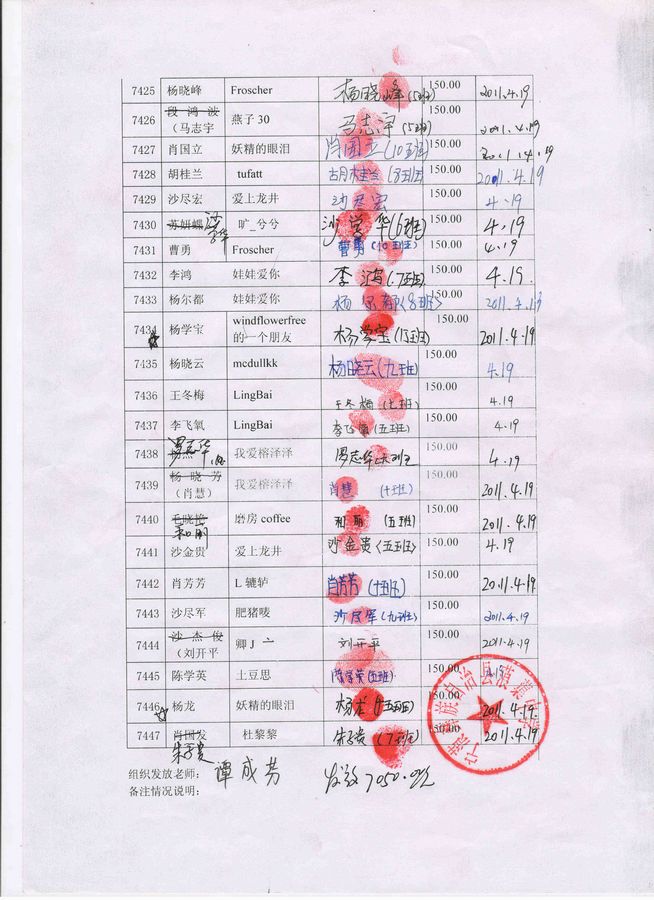 7425 杨晓峰 Froscher 杨晓峰(5班) 150.00 2011.4.19
7426 段鸿波 燕子30 马志宇(5班) 150.00 2011.4.19
(马志宇
7427 肖国立 妖精的眼泪 肖国立(10班) 150.00 2011.4.19
7428 胡桂兰 tufatt 胡桂兰(8班) 150.00 2011.4.19
7429 沙尽宏 爱上龙井 沙尽宏 150.00 4.19
7430 苏妍蝶 旷_兮兮 沙学华(6班) 150.00 4.19
7431 曹勇 Froscher 曹勇(10班) 150.00 4.19
7432 李鸿 娃娃爱你 李鸿(7班) 150.00 4.19
7433 杨尔都 娃娃爱你 杨尔都(8班) 150.00 2011.4.19
7434 杨学宝 windflowerfree 杨学宝(15班) 150.00 2011.4.19
的一个朋友
7435 杨晓云 mcdullkk 杨晓云(九班) 150.00 4.19
7436 王冬梅 LingBai 王冬梅(七班) 150.00 4.19
7437 李飞氧 LingBai 李飞氧(五班) 150.00 4.19
7438 罗志华 我爱榕泽泽 罗志华 150.00 4.19
7439 杨晓芳 我爱榕泽泽 肖慧 (十班) 150.00 2011.4.19
(肖慧)
7440 磨房coffee 和丽 (五班) 150.00 2011.4.19
7441 沙金贵 爱上龙井 沙金贵 150.00 4.19
7442 肖芳芳 L辘轳 肖芳芳 150.00 2011.4.19
7443 沙尽军 肥猪唛 沙尽军(九班) 150.00 2011.4.19
7444 沙杰俊 卿J亠 刘开平 150.00 2011.4.19
(刘开平
7445 陈学英 土豆思 150.00
7446 杨龙 妖精的眼泪 杨龙 150.00 2011.4.19
7447 肖国发 杜黎黎 朱子贵(7班) 150.00 2011.4.19
朱子贵
组织发放老师: 谭成芳 发放7050.元
备注情况说明: